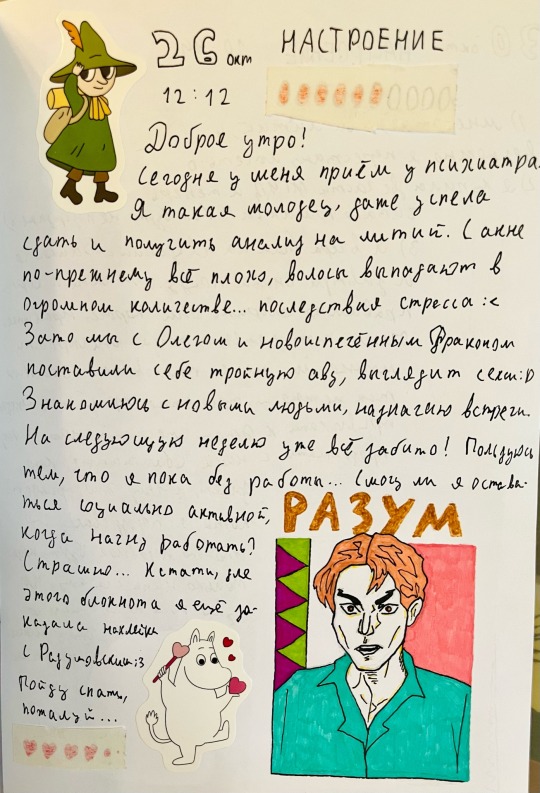 26 окт НАСТРОЕНИЕ
12:12
Доброе утро!
Сегодня у меня приём у психиатра.
Я такая молодец, даже успела
сдать и получить анализ на литий. С акне
по-прежнему всё плохо, волосы выпадают в
огромном количестве... последствия стресса :<
Зато мы с Олегом и новоиспечённым Драконом
поставили себе тройную аву, выглядит секси :D
Знакомлюсь с новыми людьми, назначаю встречи.
На следующую неделю уже всё забито! Пользуюсь
тем, что я пока без работы... Смогу ли я остава-
ться социально активной,
когда начну работать?
Страшно... Кстати, для
этого блокнота я ещё за-
казала наклейки
с Разумовским ;3
Пойду спать,
пожалуй...
РАЗУМ